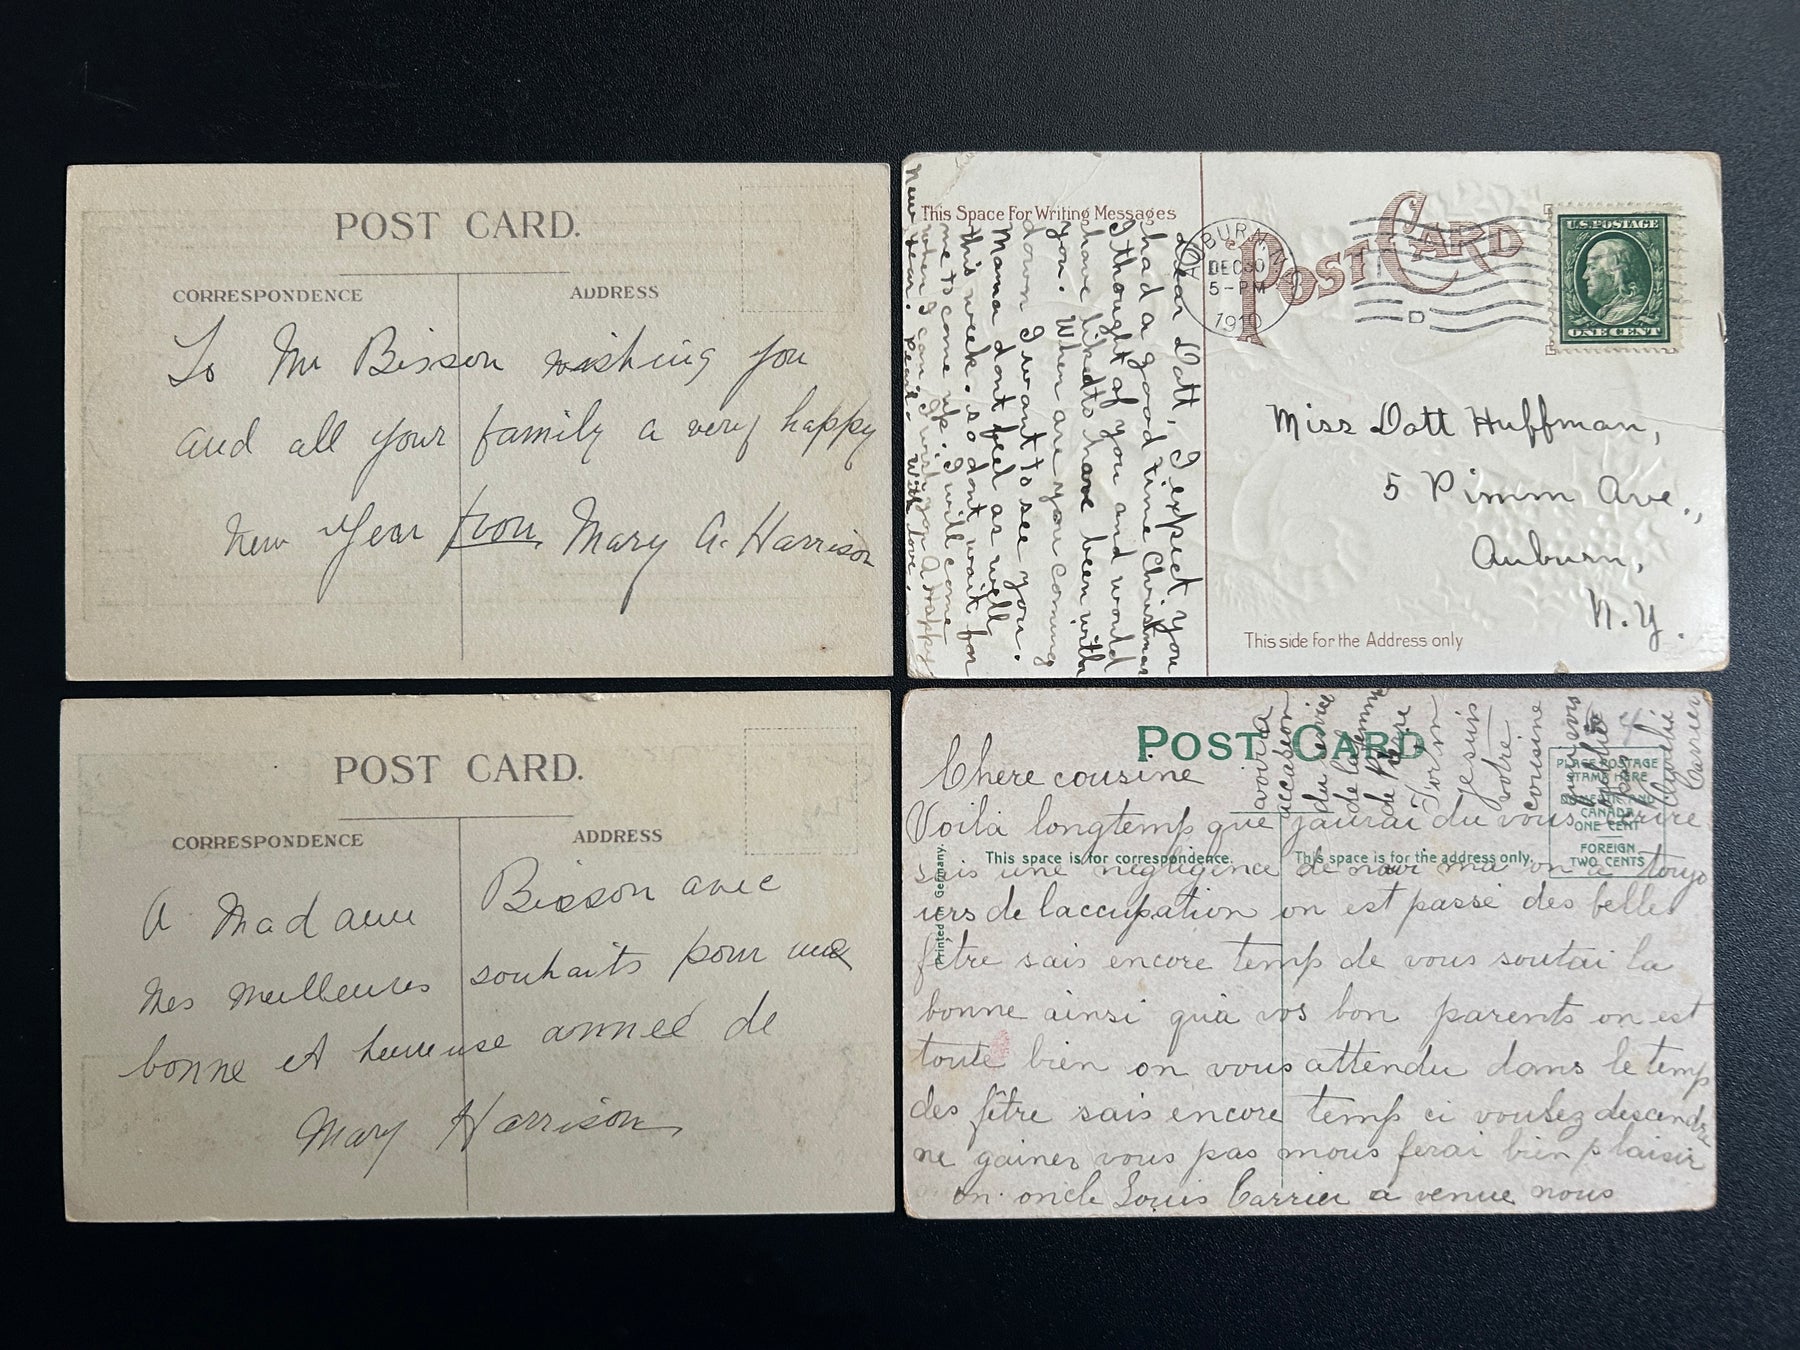 POST CARD.
CORRESPONDENCE
ADDRESS
To Mr Bisson wishing you
and all your family a very happy
New Year from Mary A. Harrison
This Space For Writing Messages
POST CARD
AUBURN, N.Y.
DEC 30
5-PM
1910
U.S. POSTAGE
ONE CENT
Dear Dott, I expect you
had a good time Christmas
I thought of you and would
have liked to have been with
you. When are you coming
down I want to see you.
Mama dont feel as well
this week. so dont wait for
me to come up. I will come
when I can. I wish you A Happy
New Year. Pearl. With love.
Miss Dott Huffman,
5 Pimm Ave.,
Auburn,
N.Y.
This side for the Address only
POST CARD.
CORRESPONDENCE
ADDRESS
A Madame Bisson avec
Mes meilleures souhaits pour une
bonne et heureuse année de
Mary Harrison
POST CARD
PLACE POSTAGE
STAMP HERE
DOMESTIC AND
CANADA
ONE CENT
FOREIGN
TWO CENTS
This space is for correspondence.
This space is for the address only.
Printed in Germany.
Chere cousine
Voila longtemp que jaurai du vous ecrire
sais une negligence de ma on a toujo
urs de laccupation on est passé des belles
fêtre sais encore temp de vous soutai la
bonne ainsi quà vos bon parents on est
toute bien on vous attendu dans le temp
des fêtre sais encore temp ci voulez descendre
ne gainer vous pas mous ferai bien plaisir
on oncle Louis Carrier a venue nous
avoir a
accasion
du
de la femme
de
jesuis
votre
cousine
Carrier